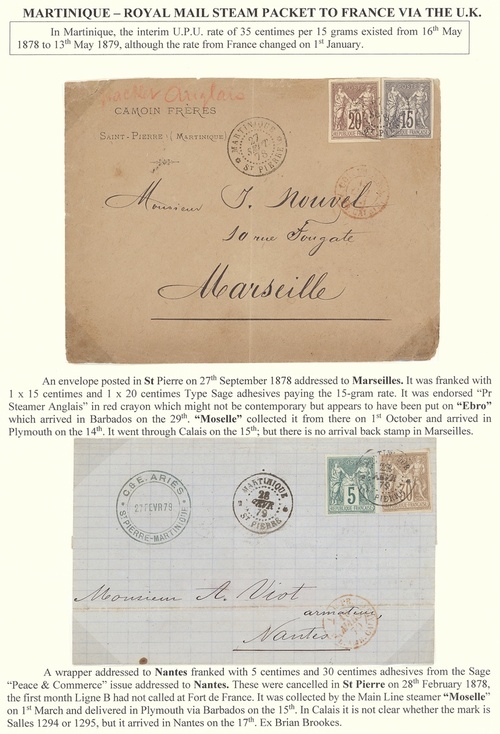 MARTINIQUE – ROYAL MAIL STEAM PACKET TO FRANCE VIA THE U.K.
In Martinique, the interim U.P.U. rate of 35 centimes per 15 grams existed from 16th May
1878 to 13th May 1879, although the rate from France changed on 1st January.
Packet Anglais
CAMOIN FRÈRES
SAINT-PIERRE (MARTINIQUE)
MARTINIQUE
27
SEPT
78
ST PIERRE
20
15
Monsieur J. Nouvel
10 rue Fongate
Marseille
An envelope posted in St Pierre on 27th September 1878 addressed to Marseilles. It was franked with
1 x 15 centimes and 1 x 20 centimes Type Sage adhesives paying the 15-gram rate. It was endorsed “Pr
Steamer Anglais” in red crayon which might not be contemporary but appears to have been put on “Ebro”
which arrived in Barbados on the 29th. “Moselle” collected it from there on 1st October and arrived in
Plymouth on the 14th. It went through Calais on the 15th; but there is no arrival back stamp in Marseilles.
C & E. ARIÈS
27 FEVR 79
ST PIERRE-MARTINIQUE
MARTINIQUE
28
FEVR
79
ST PIERRE
5
30
Monsieur A. Viot
armateur,
Nantes
A wrapper addressed to Nantes franked with 5 centimes and 30 centimes adhesives from the Sage
“Peace & Commerce” issue addressed to Nantes. These were cancelled in St Pierre on 28th February 1878,
the first month Ligne B had not called at Fort de France. It was collected by the Main Line steamer “Moselle”
on 1st March and delivered in Plymouth via Barbados on the 15th. In Calais it is not clear whether the mark is
Salles 1294 or 1295, but it arrived in Nantes on the 17th. Ex Brian Brookes.